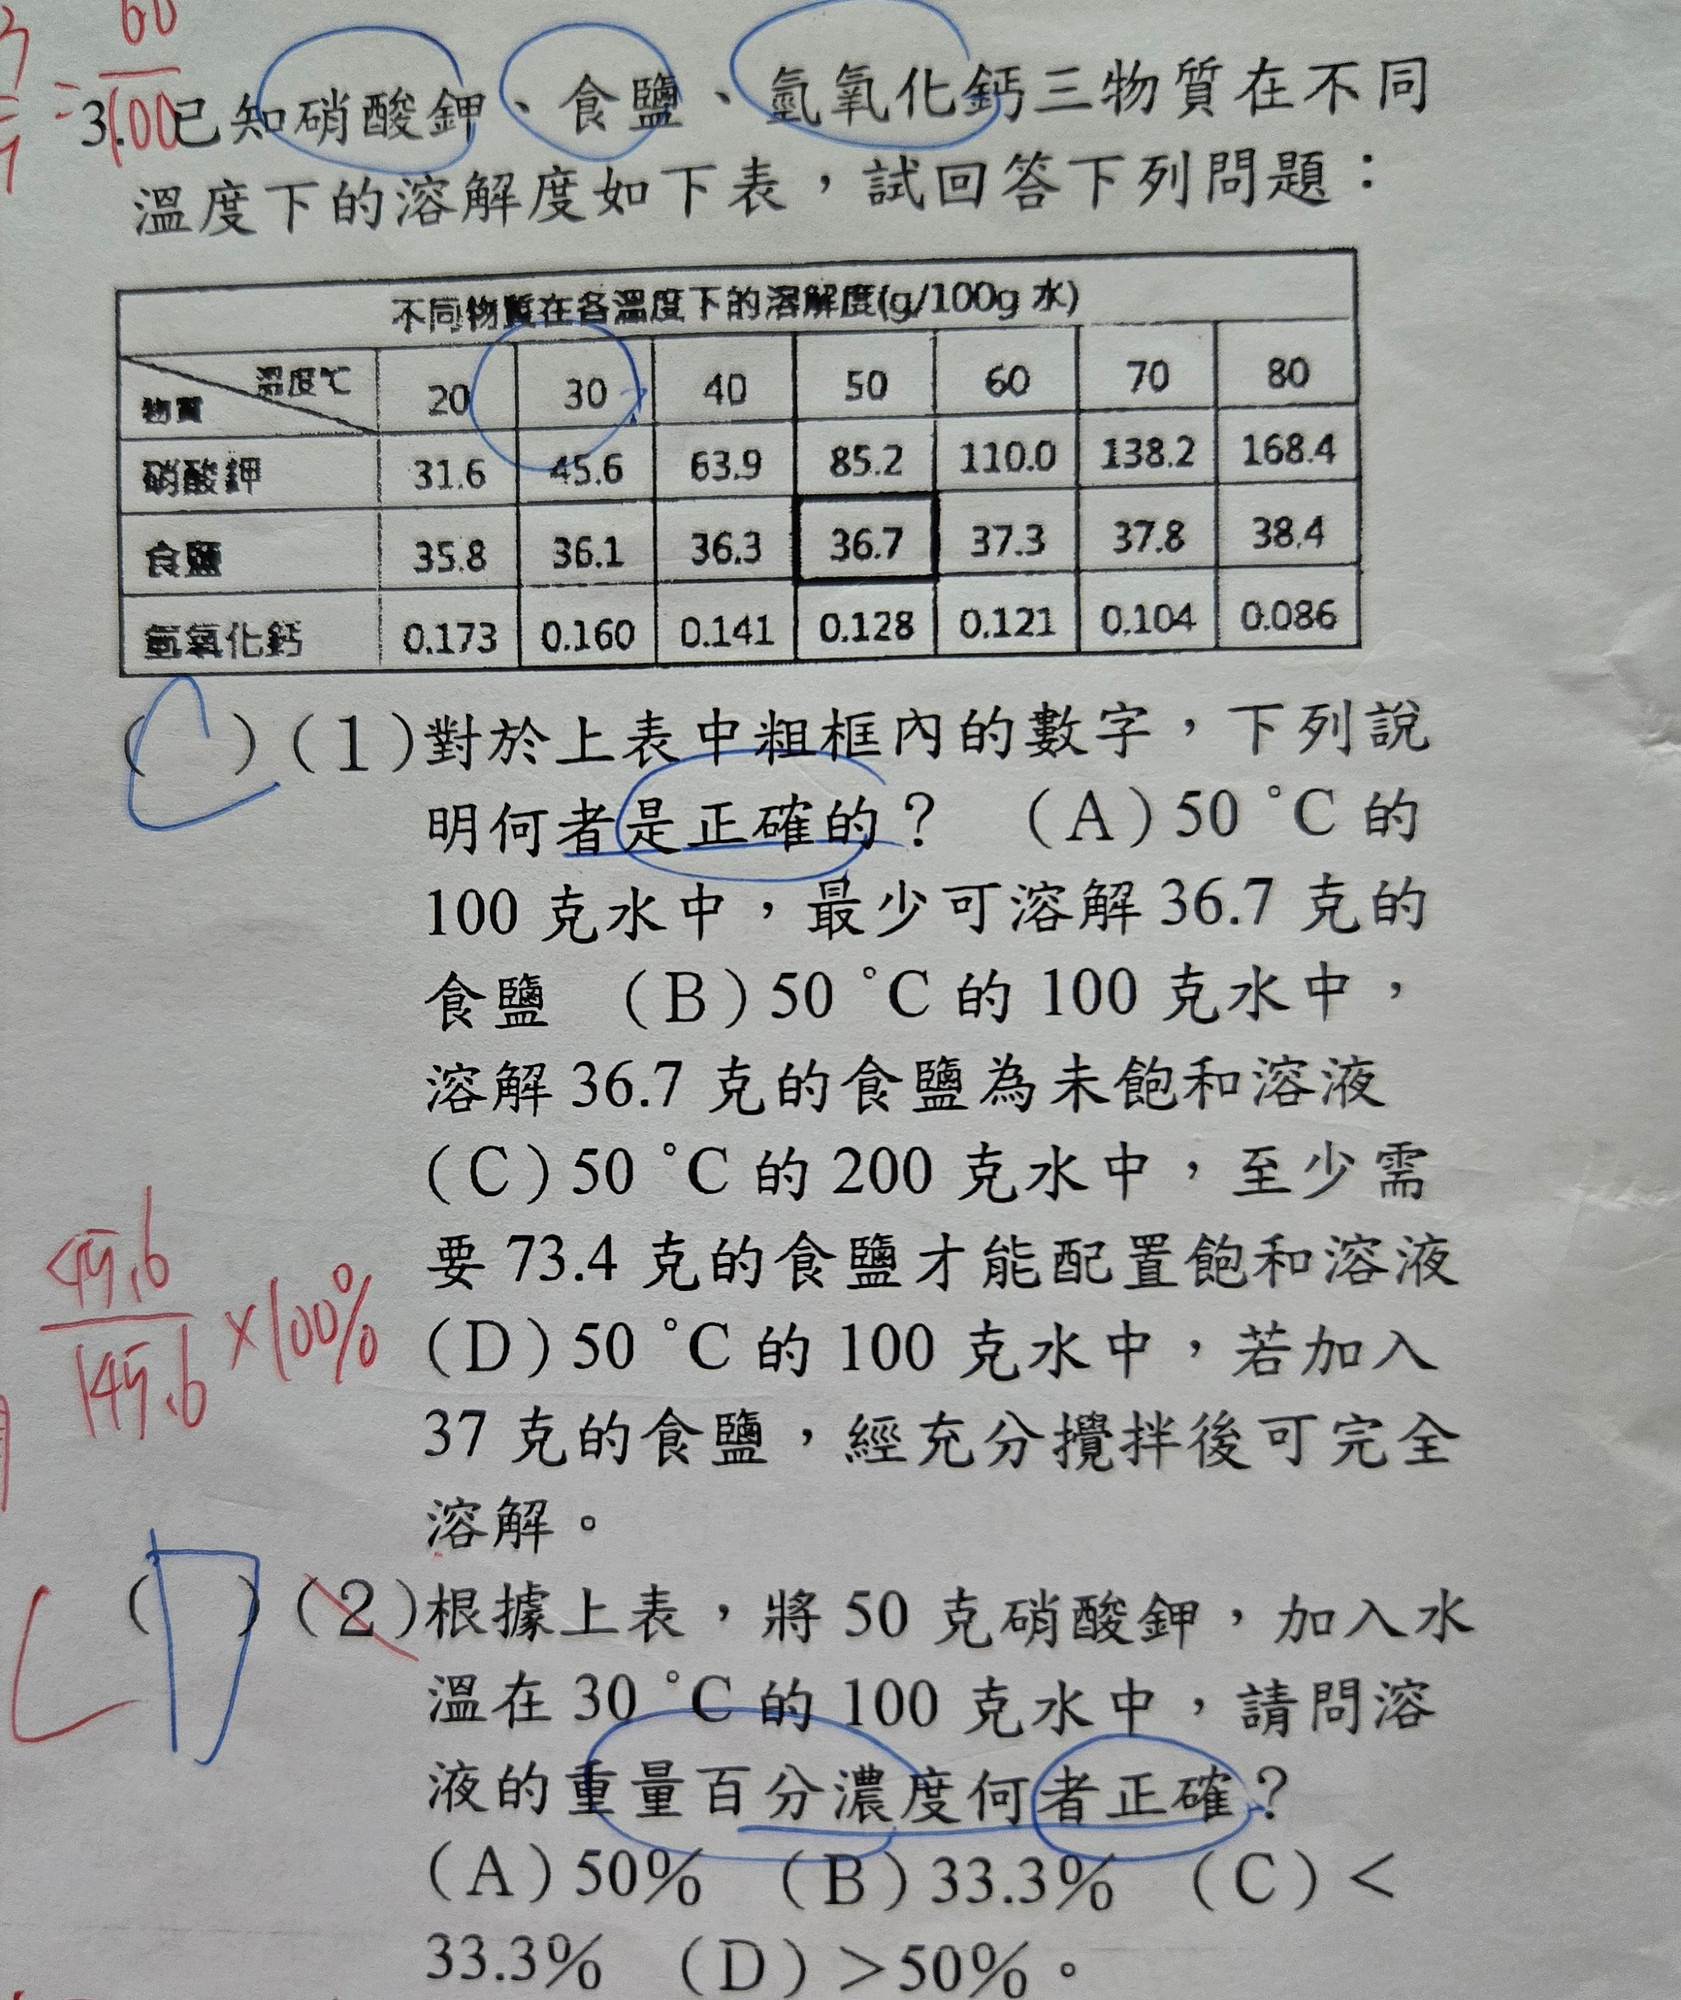 60
=
100
3.已知硝酸鉀、食鹽、氫氧化鈣三物質在不同
溫度下的溶解度如下表，試回答下列問題：
不同物質在各溫度下的溶解度(g/100g 水)
物質 溫度℃ 20 30 40 50 60 70 80
硝酸鉀 31.6 45.6 63.9 85.2 110.0 138.2 168.4
食鹽 35.8 36.1 36.3 36.7 37.3 37.8 38.4
氫氧化鈣 0.173 0.160 0.141 0.128 0.121 0.104 0.086
( C )(1)對於上表中粗框內的數字，下列說
明何者是正確的？ (A)50 °C 的
100 克水中，最少可溶解 36.7 克的
食鹽 (B)50 °C 的 100 克水中，
溶解 36.7 克的食鹽為未飽和溶液
(C)50 °C 的 200 克水中，至少需
要 73.4 克的食鹽才能配置飽和溶液
(D)50 °C 的 100 克水中，若加入
37 克的食鹽，經充分攪拌後可完全
溶解。
45.6
145.6
×100%
C
( D )(2)根據上表，將 50 克硝酸鉀，加入水
溫在 30 °C 的 100 克水中，請問溶
液的重量百分濃度何者正確？
(A)50% (B)33.3% (C)<
33.3% (D)>50%。